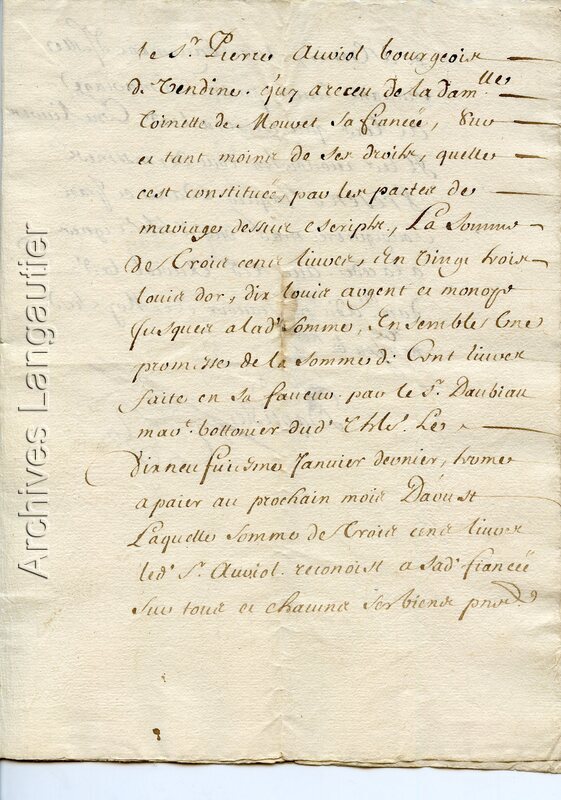 le S.r Pierre Auriol bourgeois
de Vendine. quy a receu de la dam.lle
Toinette de Mouvet sa fiancée, sur
et tant moins de ses droits, quelle
cest constituée, par les pactes de
mariage dessus escripts, La somme
de Trois cens livres, en vingt trois
louis dor, dix louis argent et monoye
jusques a lad.e somme, Ensembles Une
promesse de la somme de Cent livres
faite en sa faveur par le S.r Daubian
mar.t bottonier dud.t Le
dix neufuiesme Janvier dernier, terme
a paier au prochain mois Daoust
Laquelle somme de Trois cens livres
led.t S.r Auriol reconoist a sad.e fiancée
sur tous et chacuns ses biens pnts
Archives Langautier